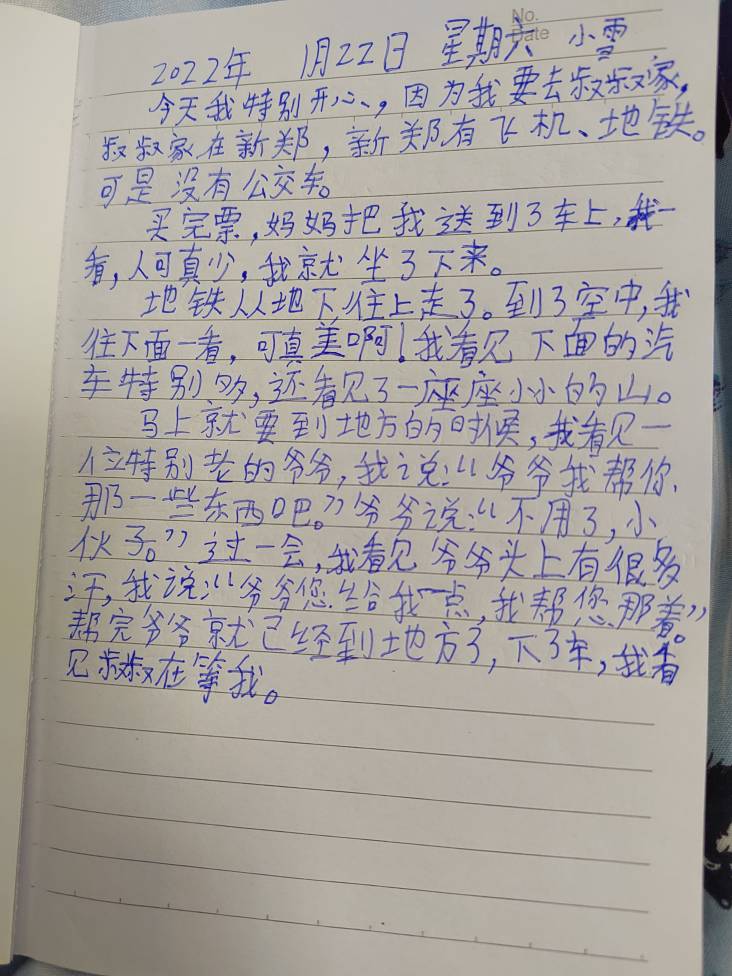 No.
Date
2022年 1月22日 星期六 小雪
今天我特别开心，因为我要去叔叔家，
叔叔家在新郑，新郑有飞机、地铁。
可是没有公交车。
买完票，妈妈把我送到了车上，我一
看，人可真少，我就坐了下来。
地铁从地下往上走了。到了空中，我
往下面一看，可真美啊！我看见下面的汽
车特别多，还看见了一座座小小的山。
马上就要到地方的时候，我看见一
位特别老的爷爷，我说：“爷爷我帮你
那一些东西吧。”爷爷说：“不用了，小
伙子。”过一会，我看见爷爷头上有很多
汗，我说：“爷爷您给我一点，我帮您那着。”
帮完爷爷就已经到地方了，下了车，我看
见叔叔在等我。